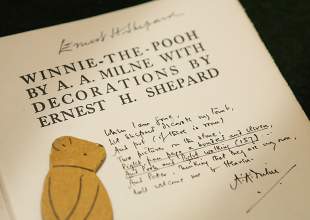 Ernest H. Shepard
WINNIE-THE-POOH
BY A. A. MILNE WITH
DECORATIONS BY
ERNEST H. SHEPARD
When I am gone,
Let Shepard decorate my tomb,
And put (if there is room)
Two pictures on the stone:
Piglet from page a hundred and eleven,
And Pooh and Piglet walking (157)
And Peter, thinking that they are my own,
Will welcome me to Heaven.
A. A. Milne